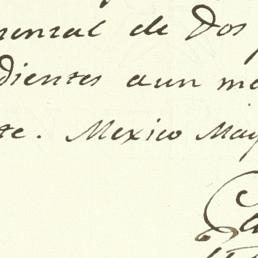 mensal de dos
dientes a un me
te. Mexico May
Ca